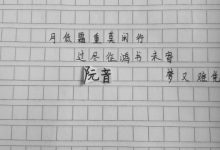 月低霜重莫闲行
过尽征鸿书未寄
阮音 梦又难